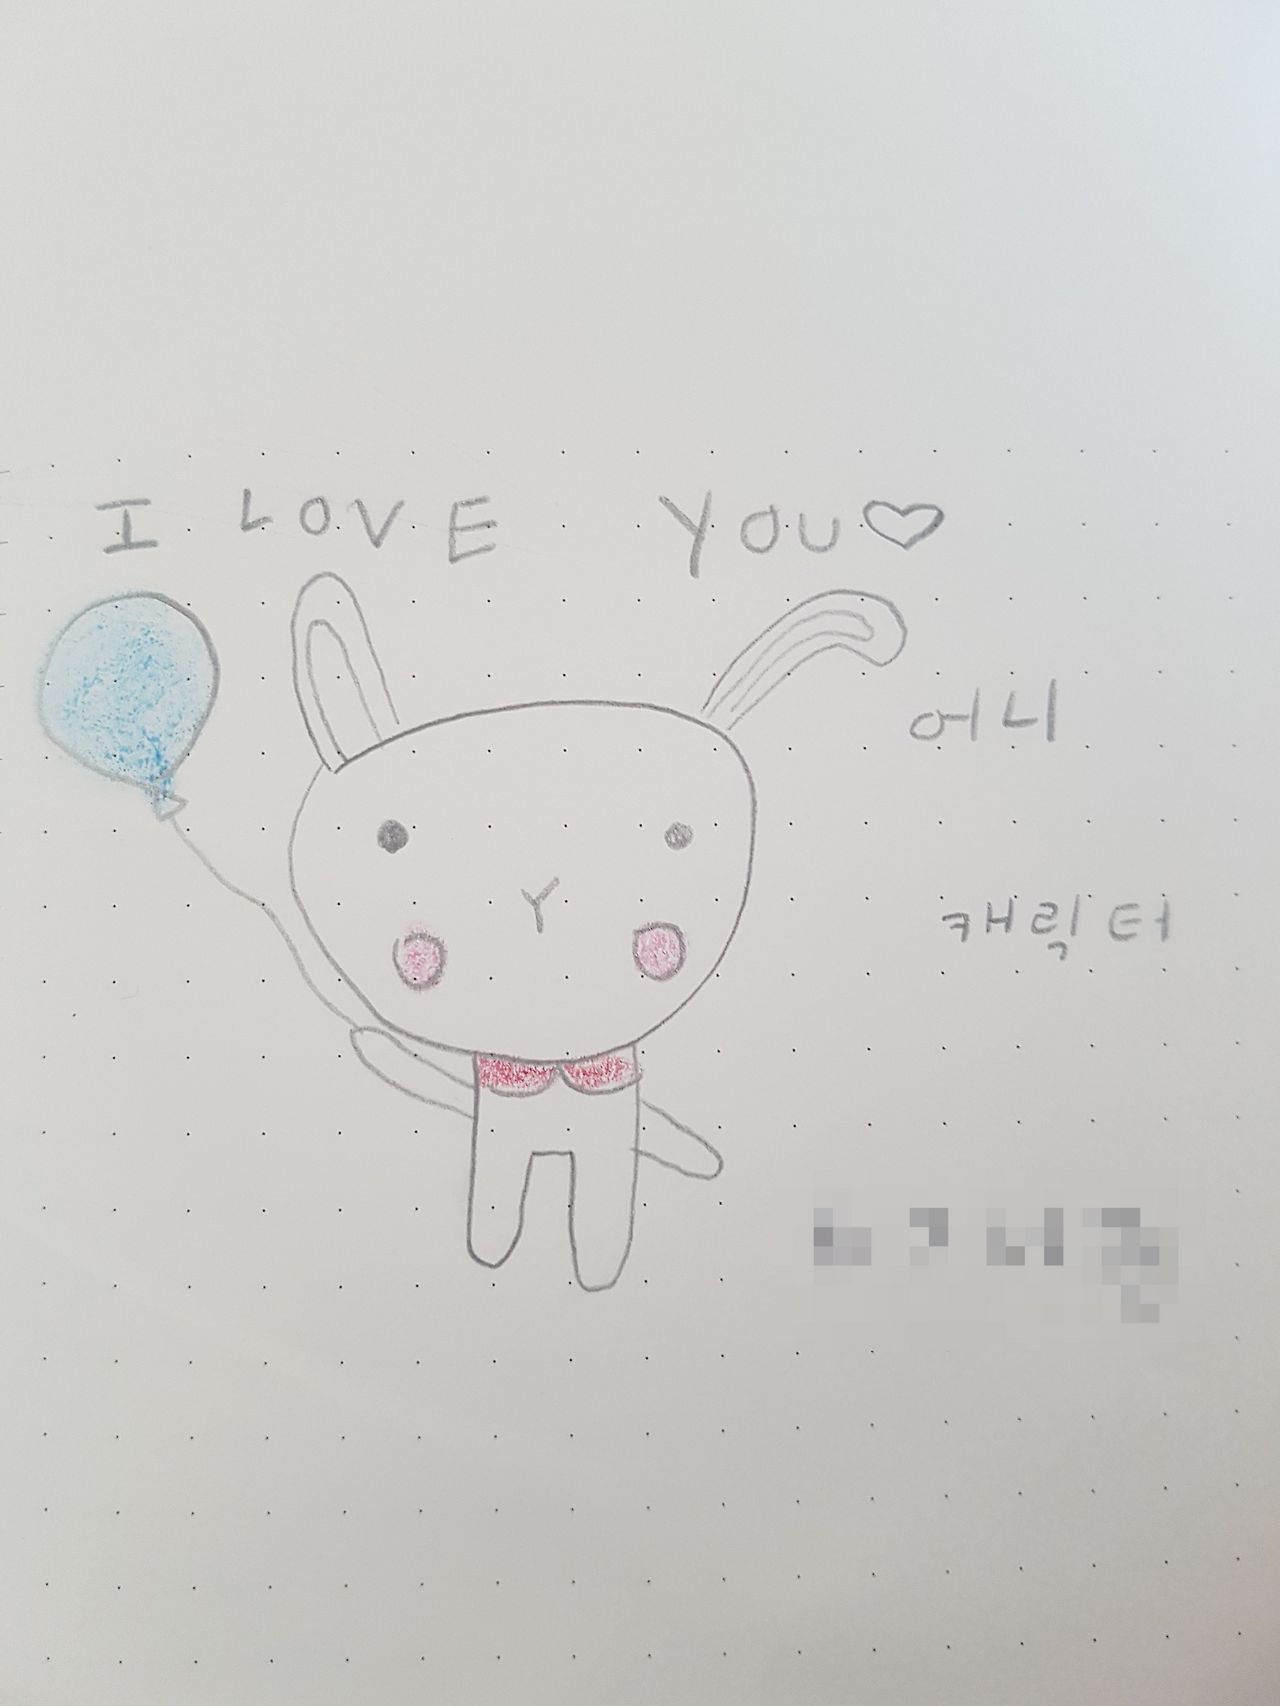 I LOVE YOU♡
어니
캐릭터